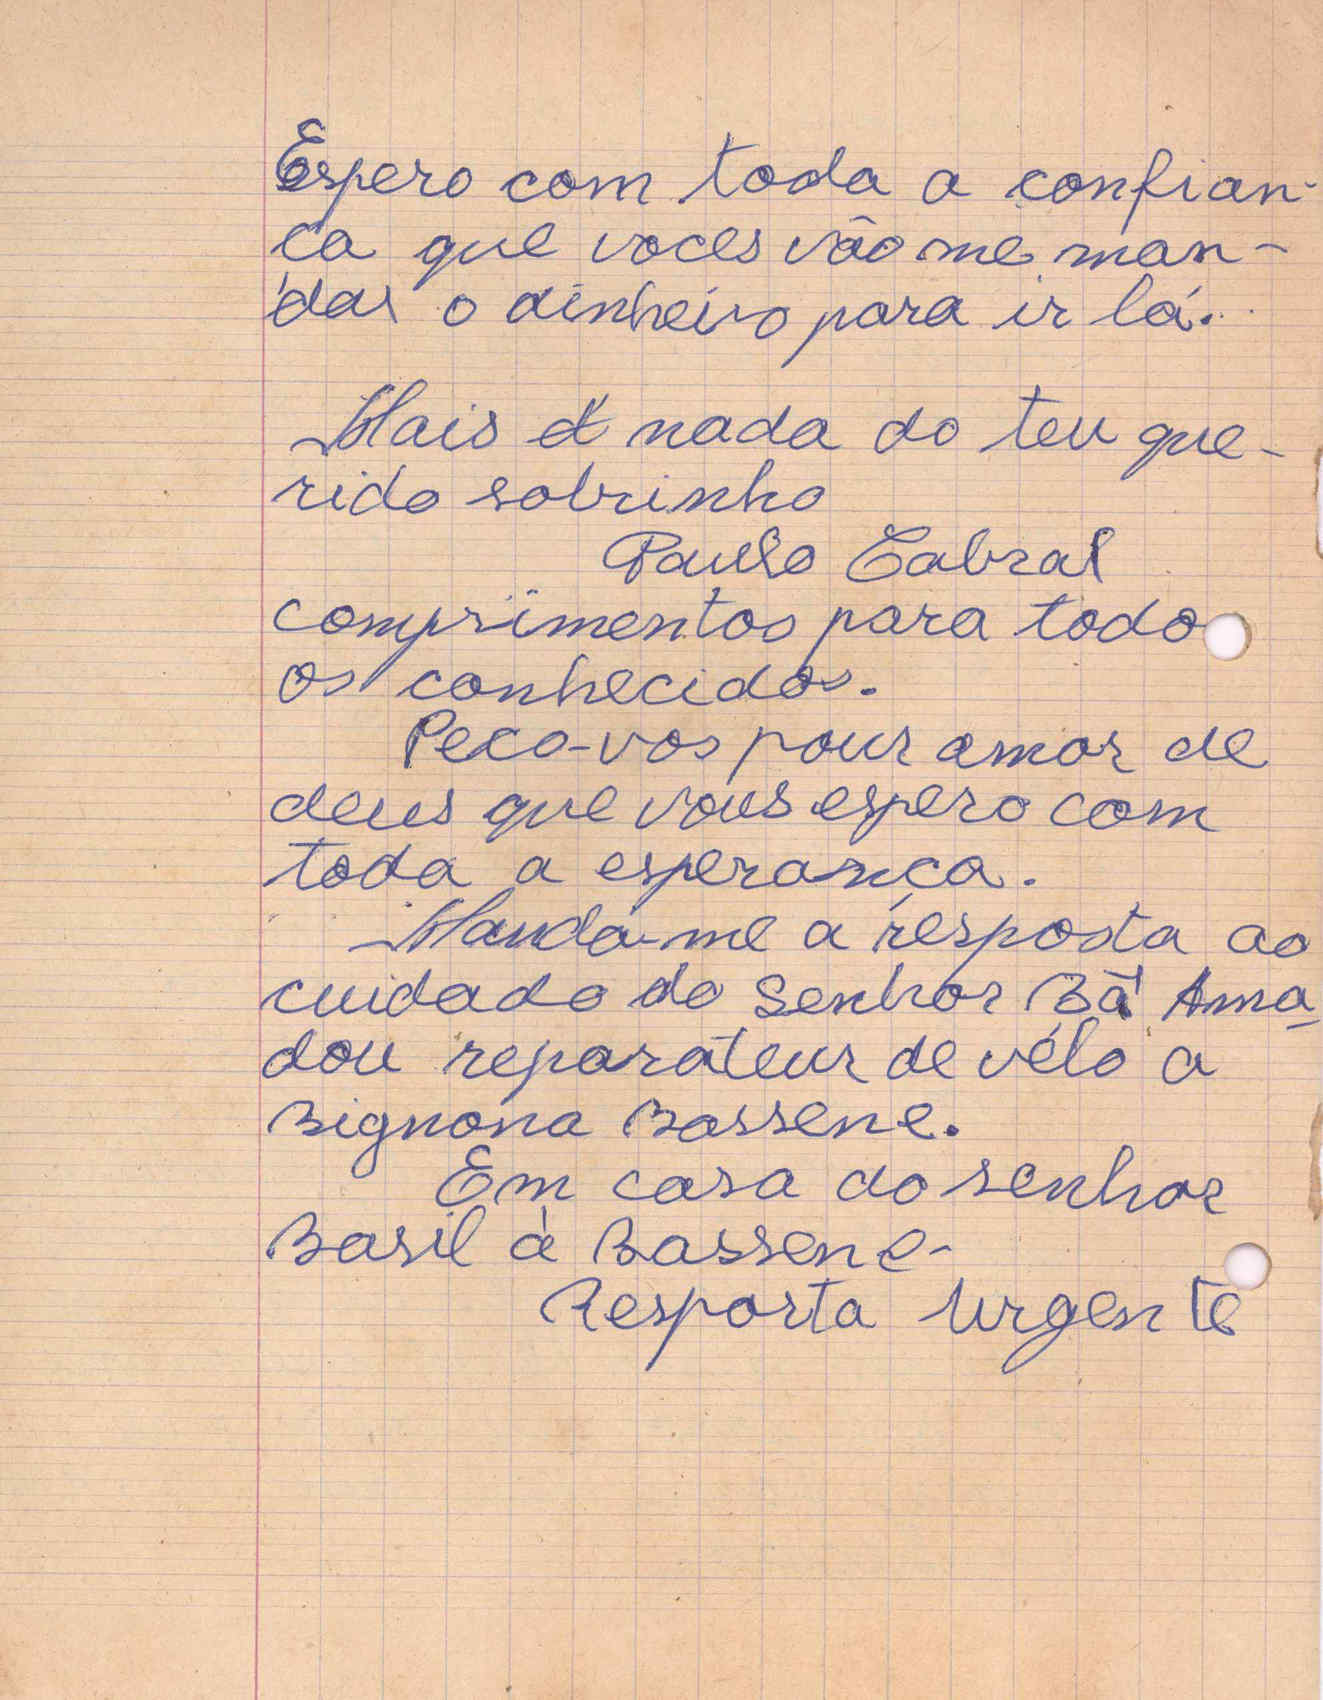 Espero com toda a confian-
ca que voces vão me man-
dar o dinheiro para ir lá.
Mais nada do teu que-
rido sobrinho
Paulo Cabral
comprimentos para todo
os conhecidos.
Peco-vos pour amor de
deus que vous espero com
toda a esperança.
Manda-me a resposta ao
cuidado do Senhor Bā Ama-
dou reparateur de vélo a
Bignona Bassene.
Em casa do senhor
Basil à Bassene-
Resposta Urgente